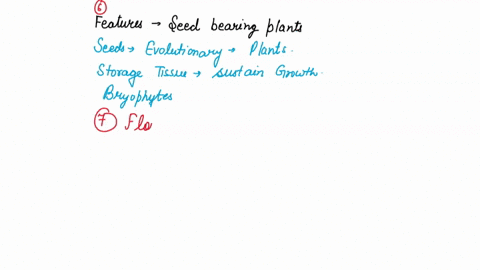 6
Features → Seed bearing plants
Seeds → Evolutionary → Plants.
Storage Tissue → sustain Growth.
Bryophytes
7 Flo